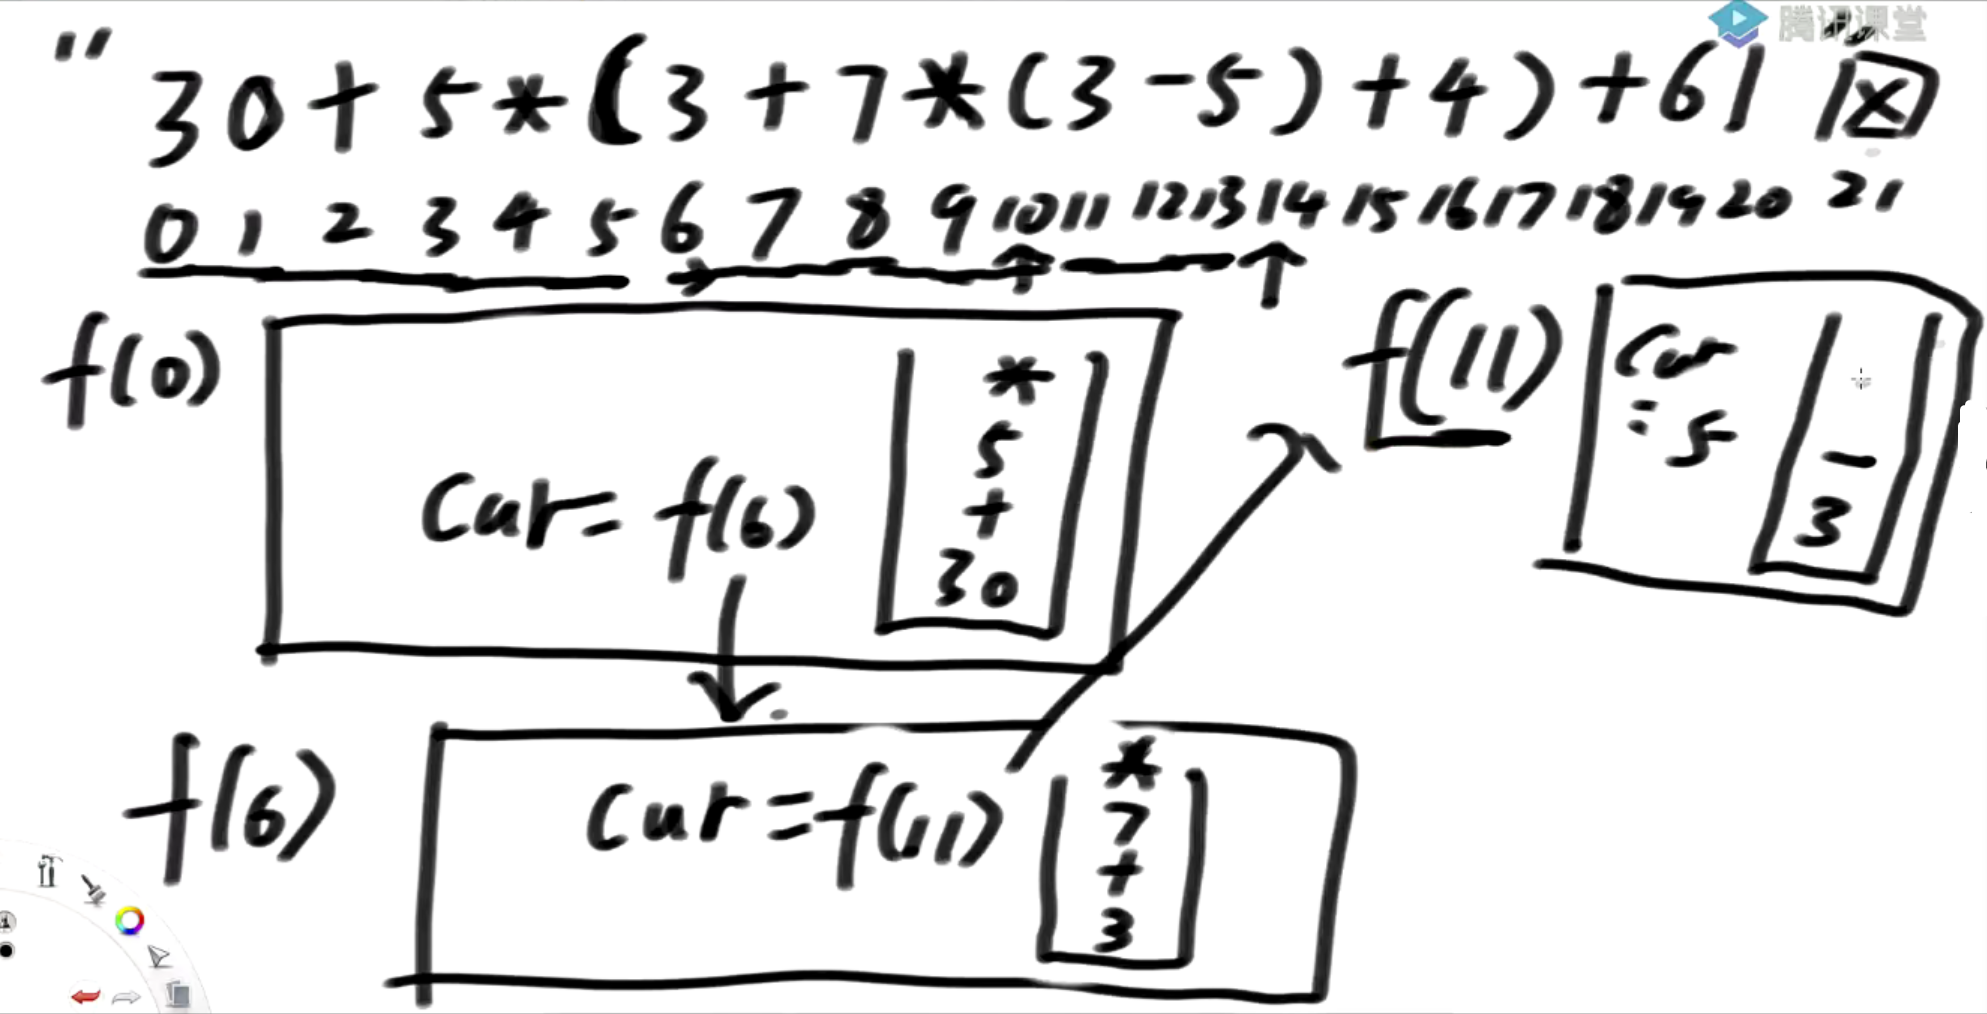 腾讯课堂
" 30+5*(3+7*(3-5)+4)+61 "
0 1 2 3 4 5 6 7 8 9 10 11 12 13 14 15 16 17 18 19 20 21
f(0)
*
5
Cur= f(6)
+
30
f(11)
Cur
= 5
-
3
f(6)
Cur=f(11)
*
7
+
3